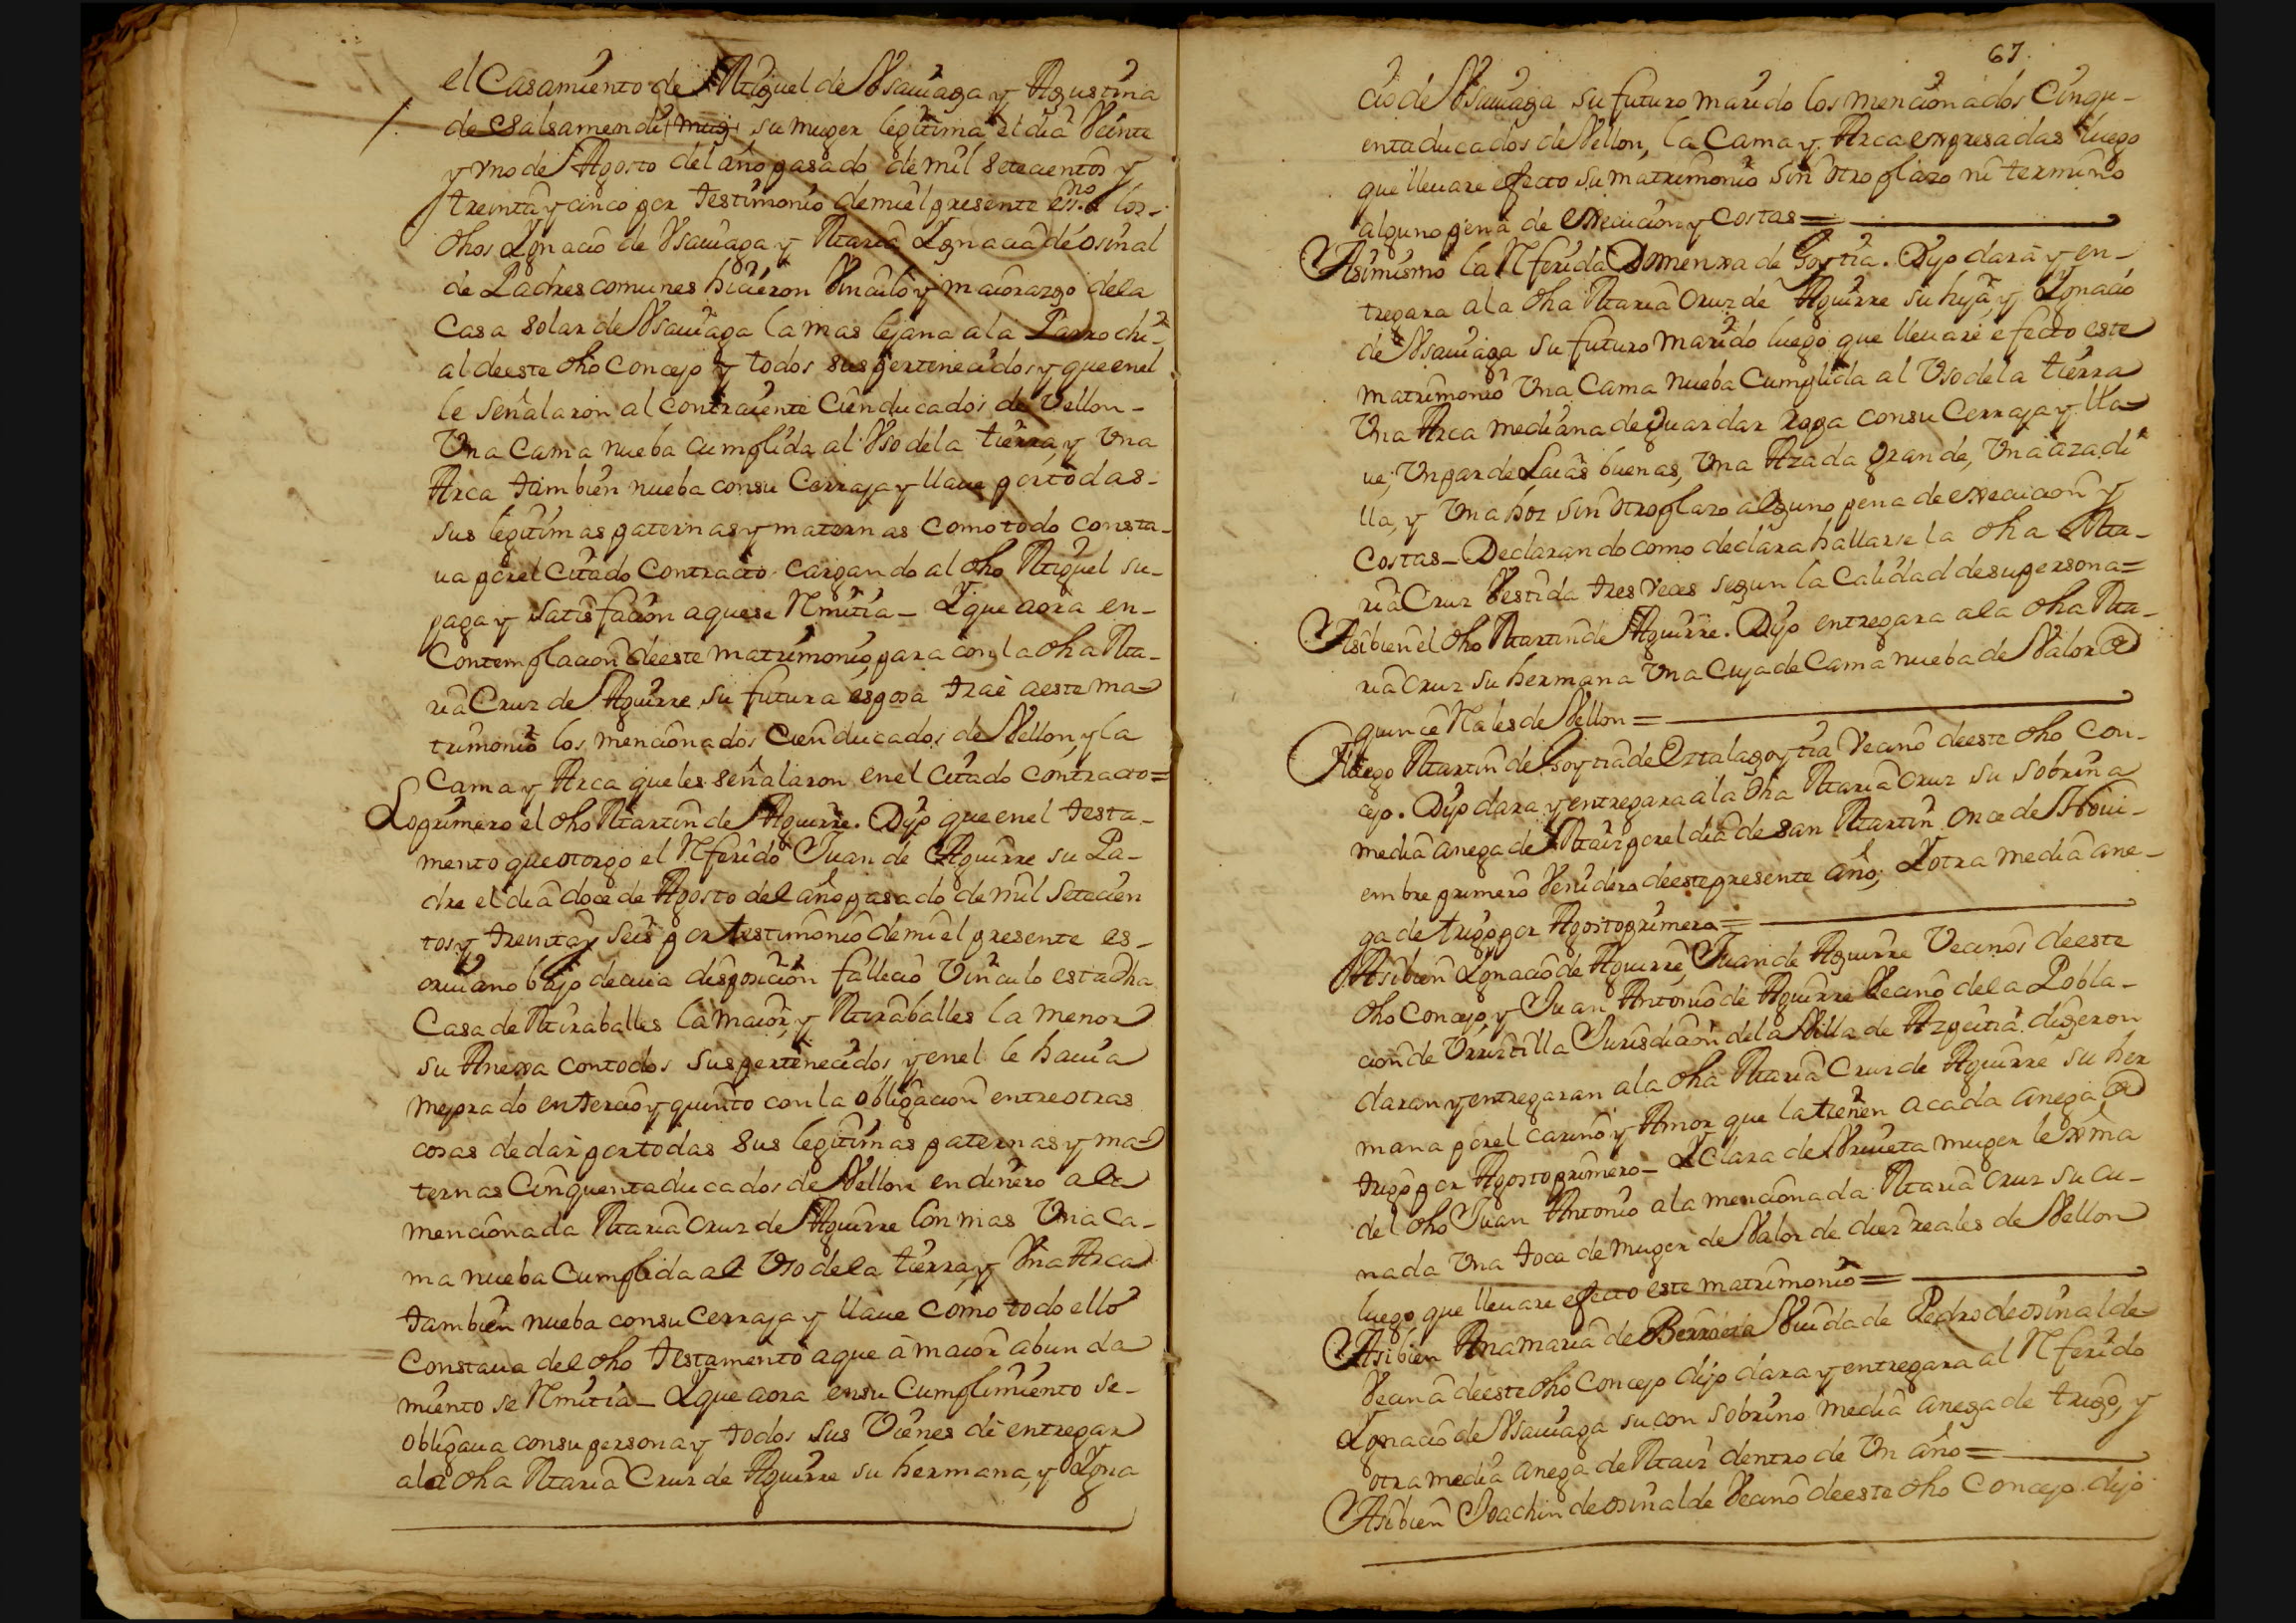 el Casamiento de Miguel de Vsauiaga y Agustina
de Balsamendi (mug) su muger legitima el dia Veinte
y vno de Agosto del año pasado de mil setecientos y
treinta y cinco por testimonio de mi el presente essno los
dhos Ygnacio de Vsauiaga y Maria Ygnacia de osinal
de Padres comunes hicieron Vinculo y maiorazgo dela
Casa solar de Vsauiaga la mas lejana a la Parrochi-
al de este dho Concejo y todos sus pertinecidos y que enel
le señalaron al contraiente Cien ducados de Vellon -
Vna Cama nueba cumplida al Vso dela tierra, y Vna
Arca tambien nueba con su Cerraja y llaue por todas -
sus legitimas paternas y maternas como todo consta-
ua por el Citado Contracto cargando al dho Miguel su-
paga y satisfacion a que se Rmitia - Y que aora en-
Contemplacion de este matrimonio, para con la dha Ma-
ria Cruz de Aguirre su futura esposa trae a este ma-
trimonio los mencionados Cien ducados de Vellon, y la
Cama y Arca que les señalaron en el Citado Contracto =
Lo primero el dho Martin de Aguirre. Dijo que en el testa-
mento que otorgo el Rferido Juan de Aguirre su Pa-
dre el dia doce de Agosto del año pasado de mil Setecien
tos y treinta y seis por testimonio de mi el presente es-
criuano bajo de cuia disposicion fallecio Vinculo esta dha
Casa de Miraballes la maior, y Miraballes la menor
su Anexa con todos sus pertenecidos, y en el le hauia
mejorado en tercio y quinto con la obligacion entre otras
cosas de dar por todas sus legitimas paternas y ma-
ternas Cinquenta ducados de Vellon en dinero a la
mencionada Maria Cruz de Aguirre Con mas Vna Ca-
ma nueba Cumplida al Vso de la tierra, y Vna Arca
tambien nueba con su Cerraja y llaue como todo ello
Constaua del dho testamento a que a maior abunda
miento se Rmitia - Y que aora en su Cumplimiento se-
obligaua con su persona y todos sus Vienes de entregar
a la dha Maria Cruz de Aguirre su hermana, y Ygna
67.
cio de Vsauiaga su futuro marido los mencionados Cinqu-
enta ducados de Vellon, la Cama y Arca expresadas luego
que lleuare efecto su matrimonio sin otro plazo ni termino
alguno pena de execucion y costas =
Asimismo la Rferida Domenxa de Goytia. Dijo dara y en-
tregara a la dha Maria Cruz de Aguirre su hija, y Ygnacio
de Vsauiaga su futuro marido luego que lleuare efecto este
matrimonio Vna Cama nueba Cumplida al Vso de la tierra
Vna Arca mediana de guardar Ropa con su Cerraja y lla-
ue, Vn par de Laias buenas, Vna Azada grande, Vna azadi
lla, y Vna hoz sin otro plazo alguno pena de execucion y
Costas - Declarando como declara hallarse la dha Ma-
ria Cruz Vestida tres veces segun la Calidad de su persona =
Asi bien el dho Martin de Aguirre. Dijo entregara a la dha Ma-
ria Cruz su hermana Vna Cuja de Cama nueba de Valor de
quince Rales de Vellon =
Luego Martin de Goytia de Oztalagoytia Vecino de este dho Con-
cejo. Dijo dara y entregara a la dha Maria Cruz su sobrina
media anega de Maiz por el dia de san Martin Once de Noui-
embre primero Venidero de este presente año; Y otra media ane-
ga de trigo por Agosto primero =
Asi bien Ygnacio de Aguirre, Juan de Aguirre Vecinos de este
dho Concejo y Juan Antonio de Aguirre Vecino de la Pobla-
cion de Vrrestilla Jurisdicion de la Villa de Azpeitia digeron
daran y entregaran a la dha Maria Cruz de Aguirre su her
mana por el cariño y Amor que la tienen a cada anega de
trigo por Agosto primero - Y Clara de Vrruieta muger lexma
del dho Juan Antonio a la mencionada Maria Cruz su cu-
nada Vna toca de muger de Valor de diez reales de Vellon
luego que lleuare efecto este matrimonio =
Asi bien Ana maria de Viuda de Pedro de osinalde
Vecina de este dho Concejo dijo dara y entregara al Rferido
Ygnacio de Vsauiaga su con sobrino media anega de trigo, y
otra media anega de Maiz dentro de Vn año =
Asi bien Joachin de osinalde Vecino de este dho Concejo dijo